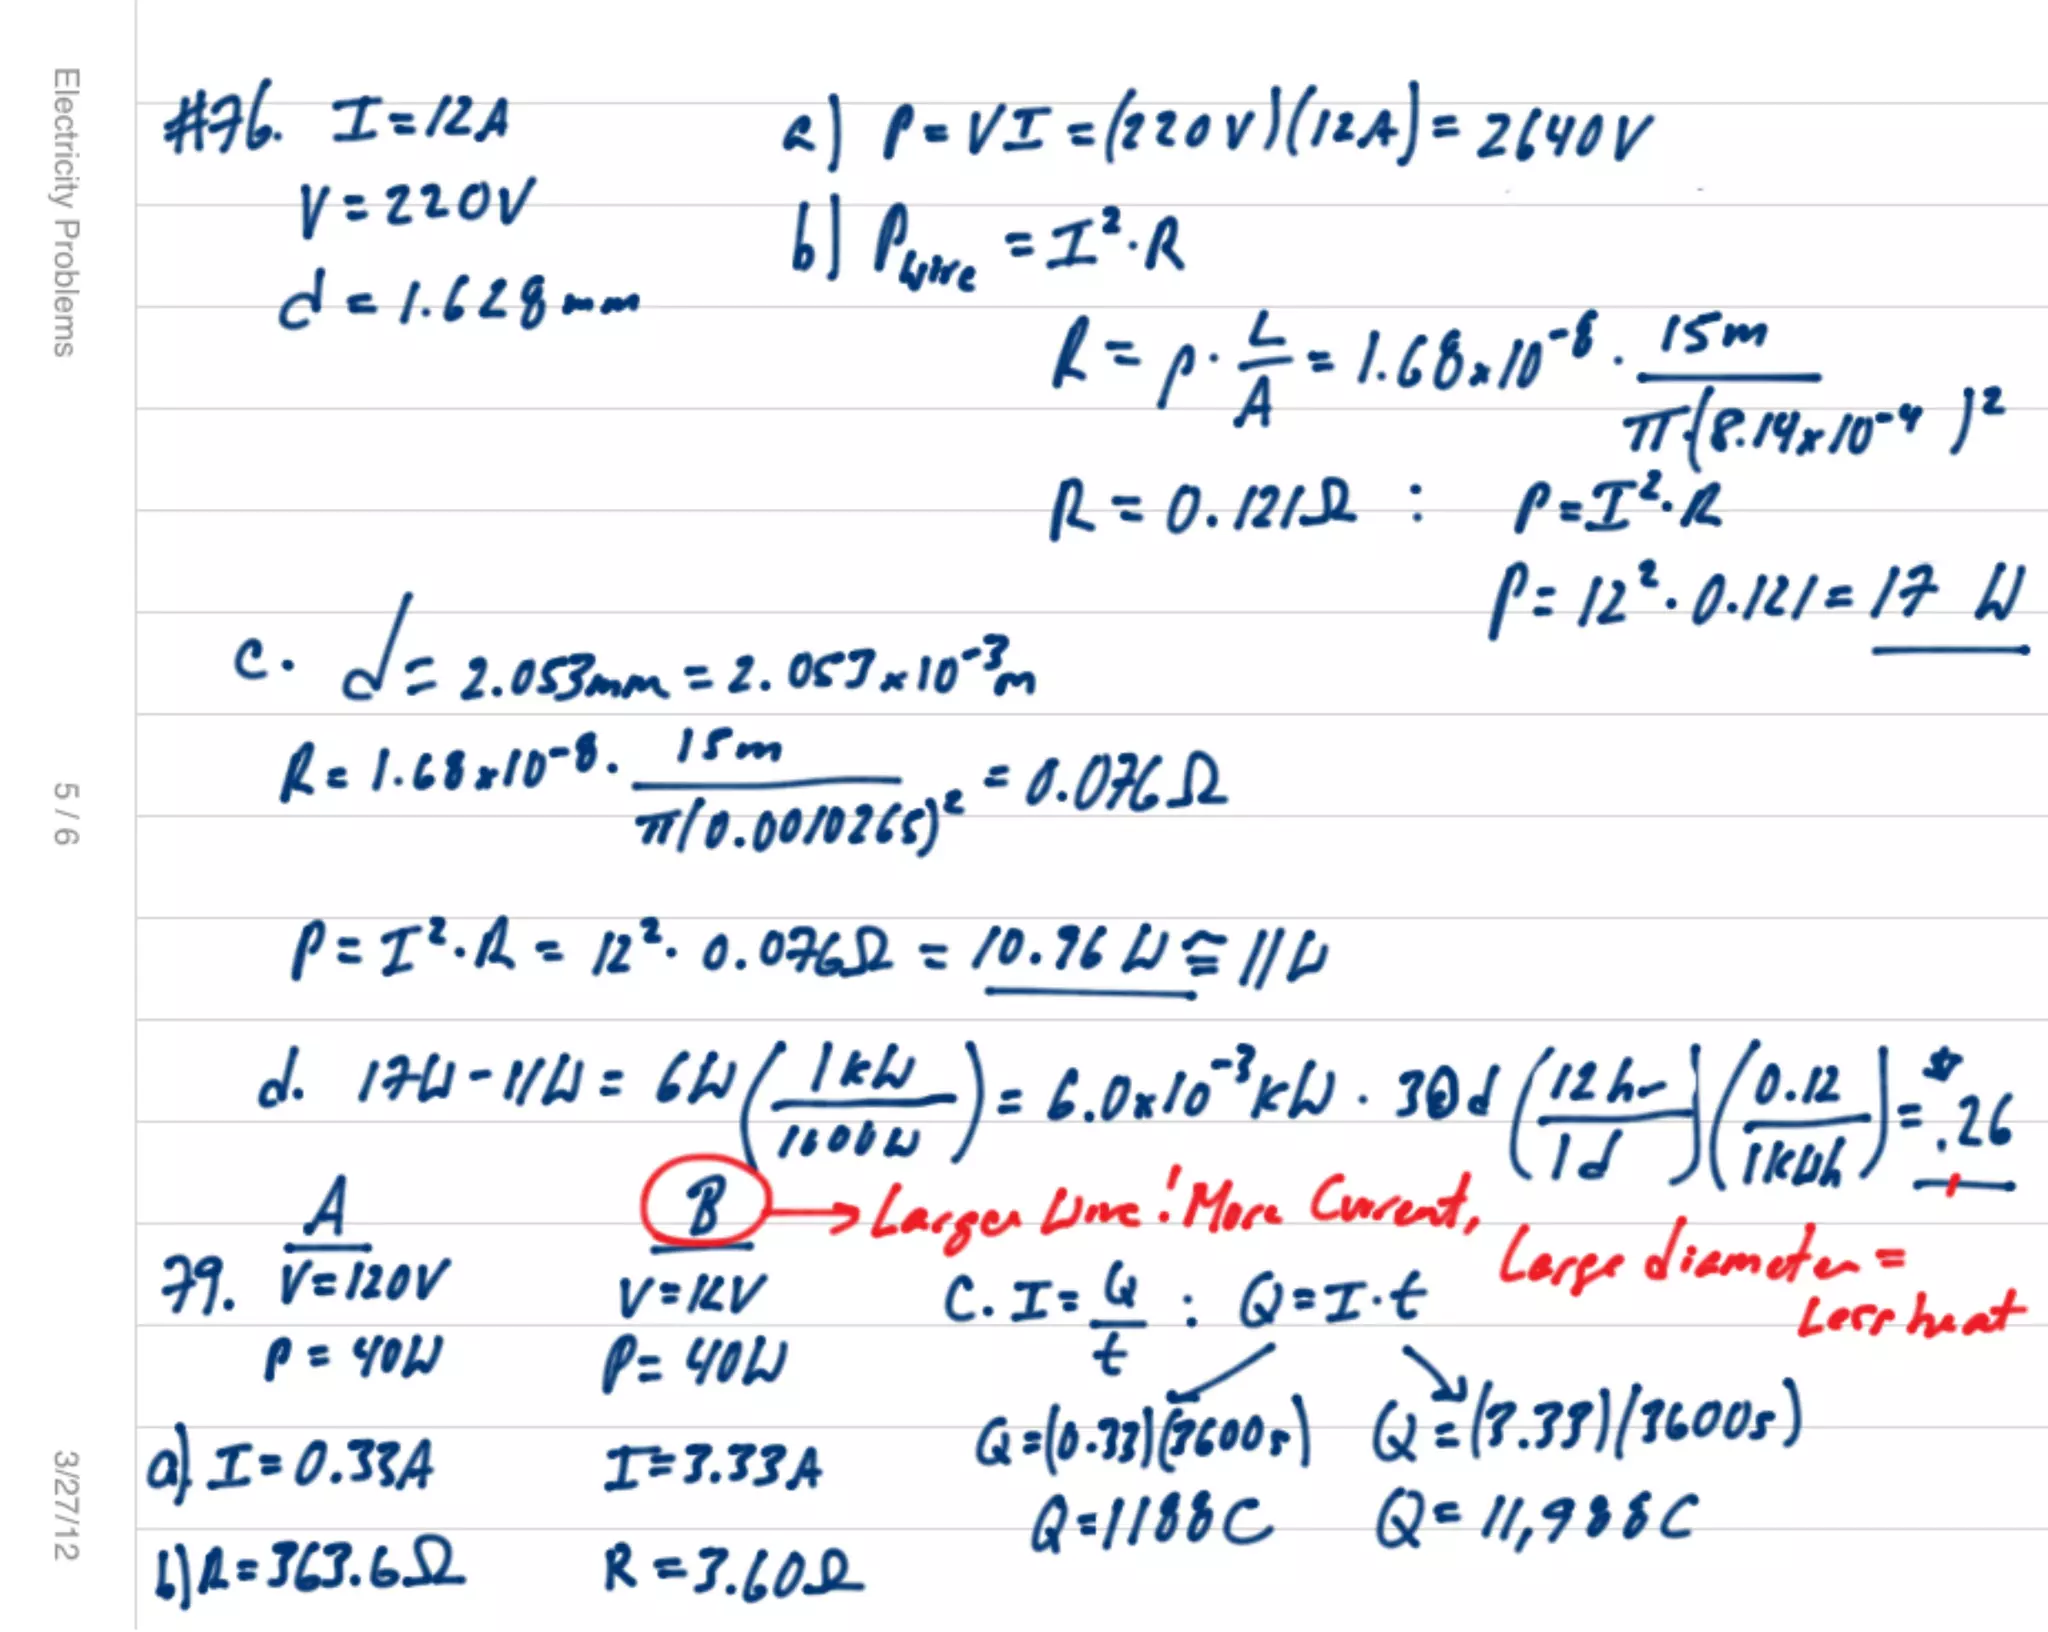 Electricity Problems
#76. I = 12A
V = 220V
d = 1.628mm
a) P = VI = (220V)(12A) = 2640V
b) Pwire = I²·R
R = ρ · L/A = 1.68x10⁻⁸ · 15m / π(8.14x10⁻⁴)²
R = 0.121Ω : P = I²·R
P = 12² · 0.121 = 17 W
c. d = 2.053mm = 2.053x10⁻³m
R = 1.68x10⁻⁸ · 15m / π(0.0010265)² = 0.076Ω
P = I²·R = 12² · 0.076Ω = 10.96 W ≅ 11W
d. 17W - 11W = 6W (1kW / 1000W) = 6.0x10⁻³kW · 30d (12hr / 1d) (0.12 / 1kWh) = $.26
79.
A
V = 120V
P = 40W
a) I = 0.33A
b) R = 363.6Ω
B → Larger Wire! More Current, Large diameter = Less heat
V = 12V
P = 40W
I = 3.33A
R = 3.60Ω
C. I = Q/t : Q = I·t
Q = (0.33)(3600s) Q = (3.33)(3600s)
Q = 1188C Q = 11,988C
5 / 6
3/27/12